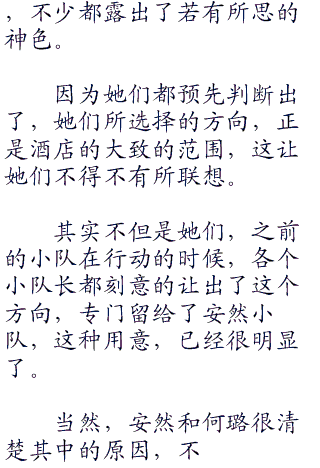 ，不少都露出了若有所思的
神色。
因为她们都预先判断出
了，她们所选择的方向，正
是酒店的大致的范围，这让
她们不得不有所联想。
其实不但是她们，之前
的小队在行动的时候，各个
小队长都刻意的让出了这个
方向，专门留给了安然小
队，这种用意，已经很明显
了。
当然，安然和何璐很清
楚其中的原因，不